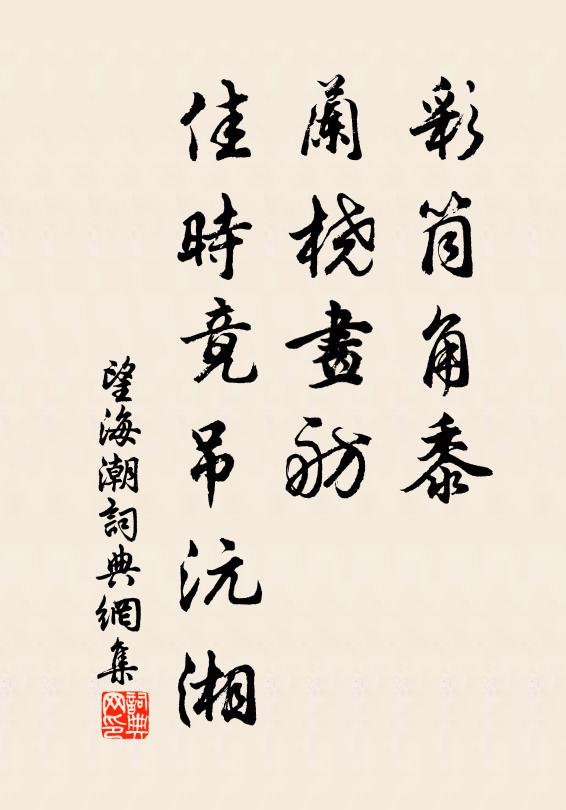 彩筒角黍
蘭橈畫舫
佳時竟吊沅湘
望海潮詞典網集
詞典网印